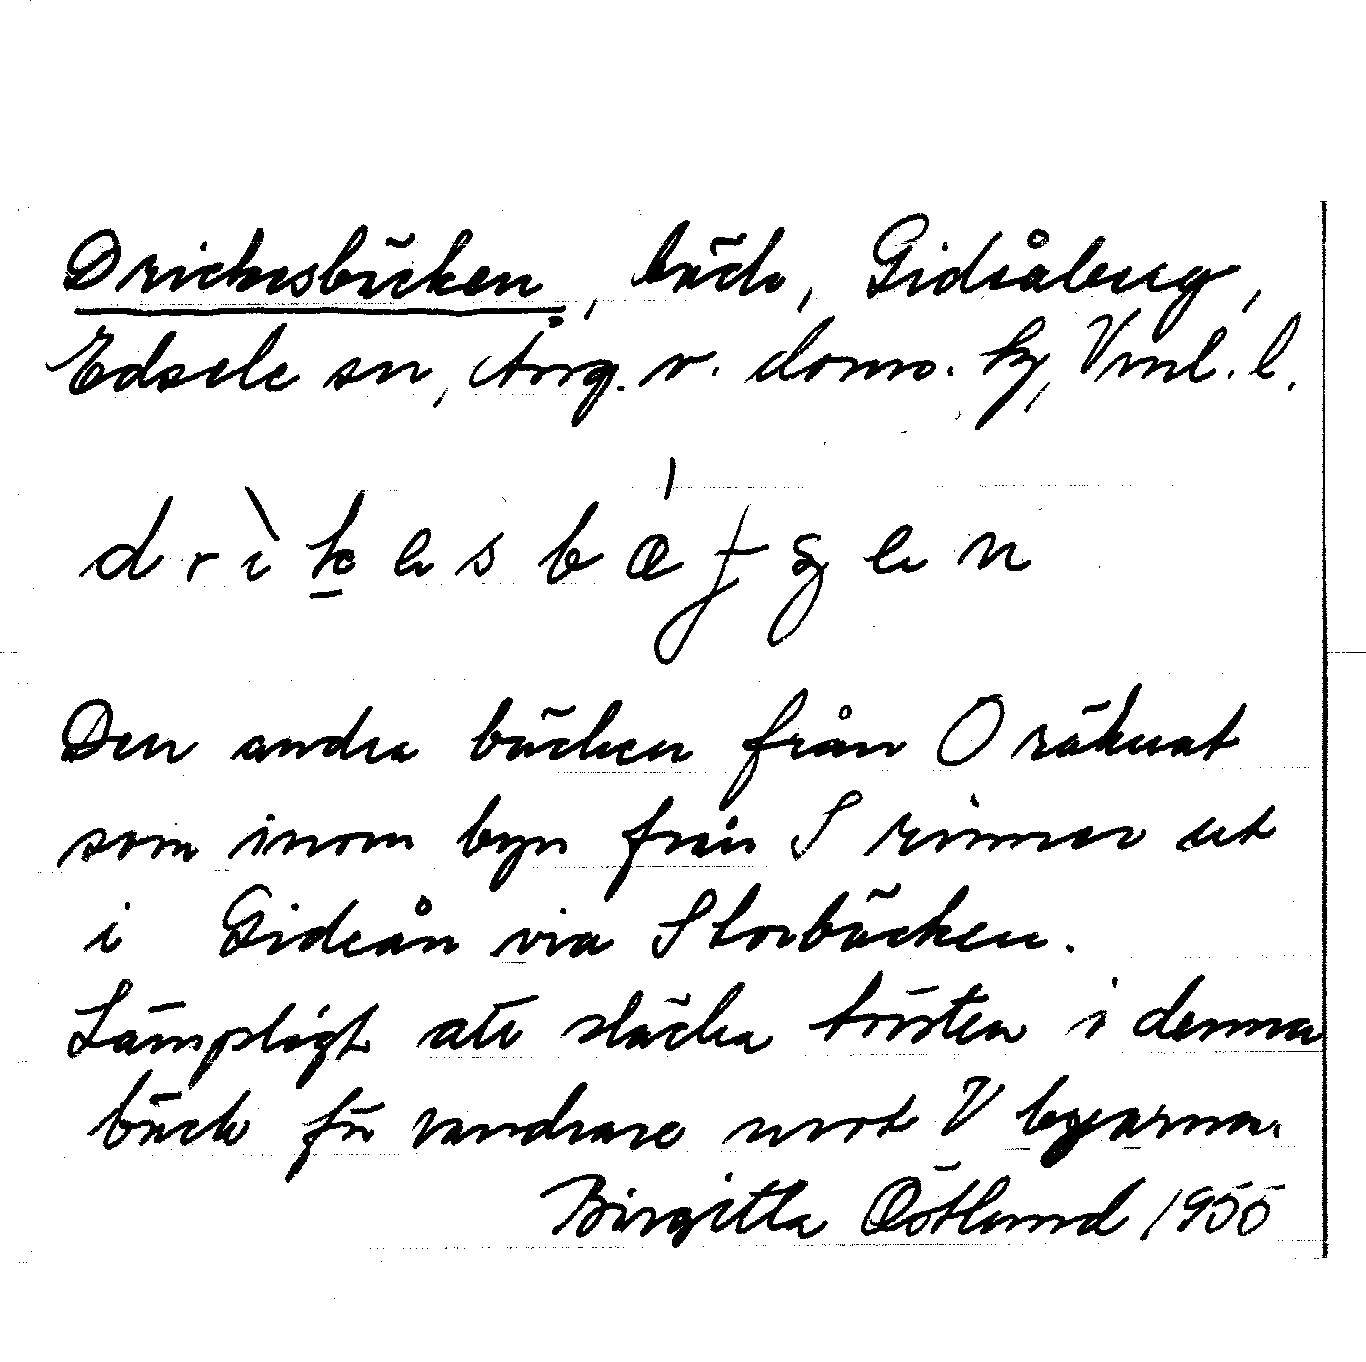 Drickesbäcken, bäck, Gideåberg,
Edsele sn, Ång. v. doms. hg, Vnl. l.
drìkesbæ´ʄʒen
Den andra bäcken från O räknat
som inom byn från S rinner ut
i Gideån via Storbäcken.
Lämpligt att släcka törsten i denna
bäck för vandrare mot V byarna.
Birgitta Östlund 1955